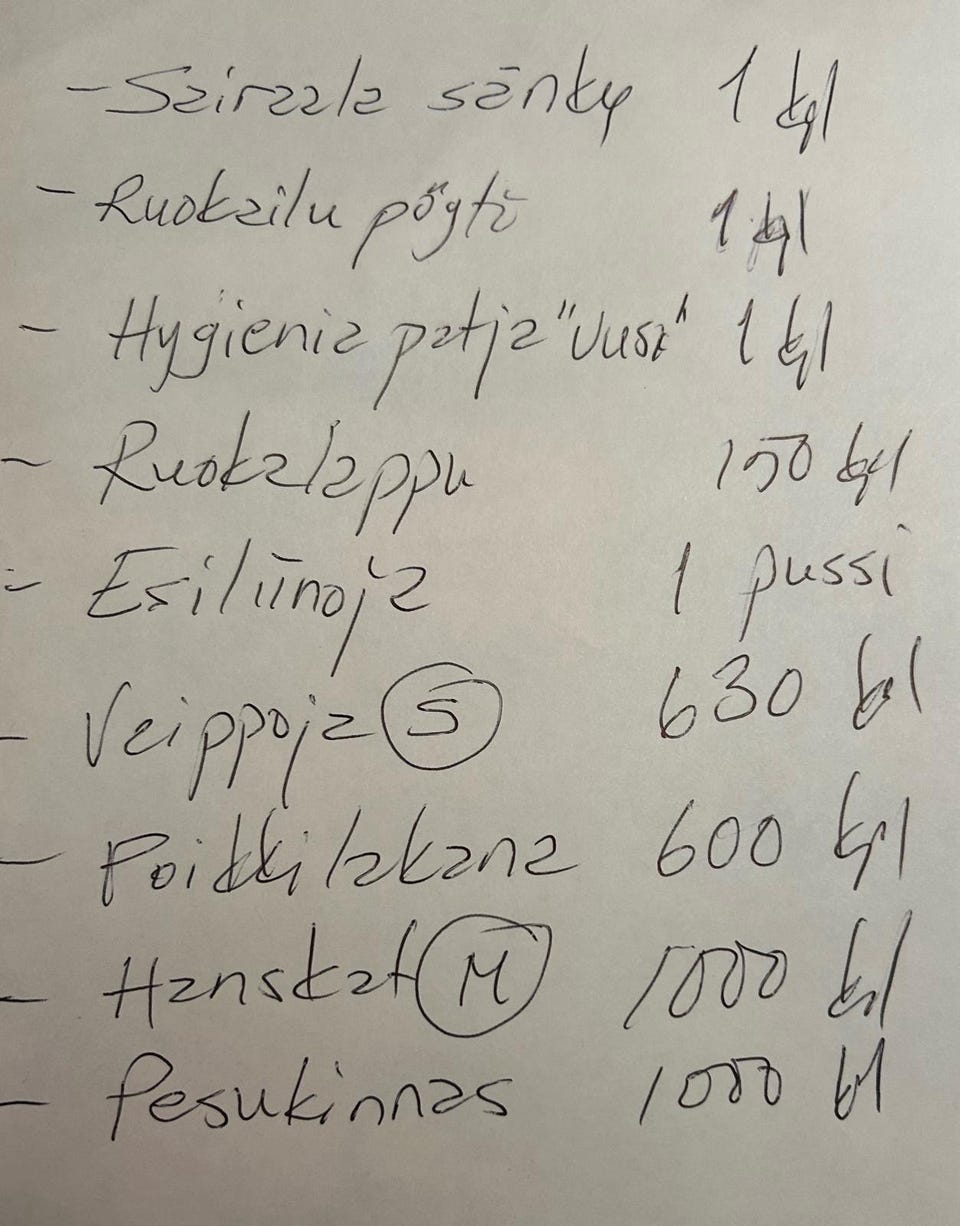 - Sairaala sänky 1 kpl
- Ruokailu pöytä 1 kpl
- Hygienia patja "Uusi" 1 kpl
- Ruokalappu 150 kpl
- Esiliinoja 1 pussi
- Vaippoja S 630 kpl
- Poikkilakana 600 kpl
- Hanskat M 1000 kpl
- Pesukinnas 1000 kpl